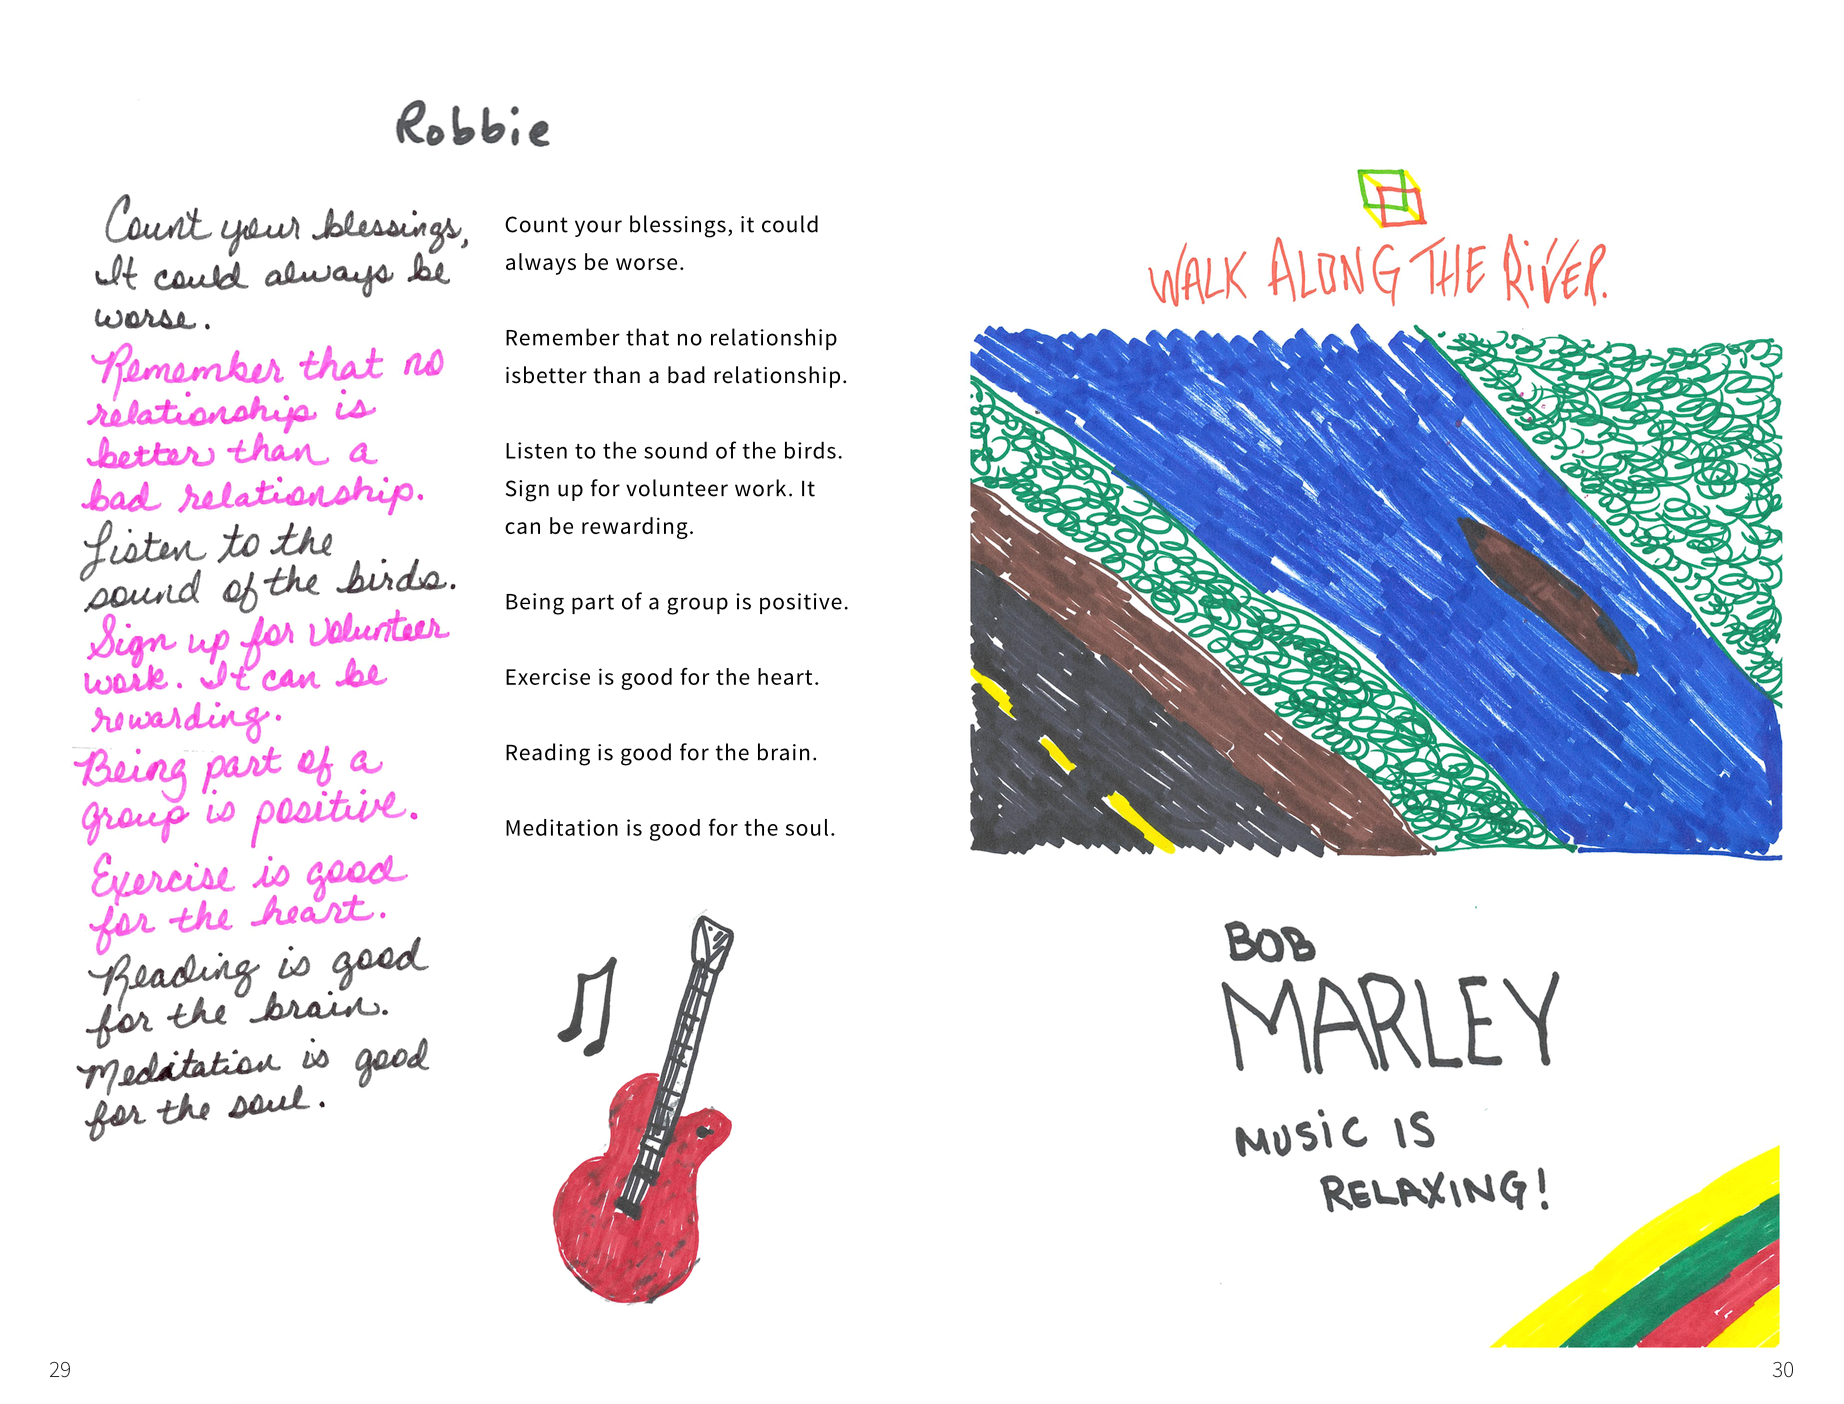 Robbie
Count your blessings,
It could always be
worse.
Remember that no
relationship is
better than a
bad relationship.
Listen to the
sound of the birds.
Sign up for volunteer
work. It can be
rewarding.
Being part of a
group is positive.
Exercise is good
for the heart.
Reading is good
for the brain.
Meditation is good
for the soul.
Count your blessings, it could
always be worse.
Remember that no relationship
isbetter than a bad relationship.
Listen to the sound of the birds.
Sign up for volunteer work. It
can be rewarding.
Being part of a group is positive.
Exercise is good for the heart.
Reading is good for the brain.
Meditation is good for the soul.
29
WALK ALONG THE RiVER.
BOB
MARLEY
MUSiC IS
RELAXING!
30